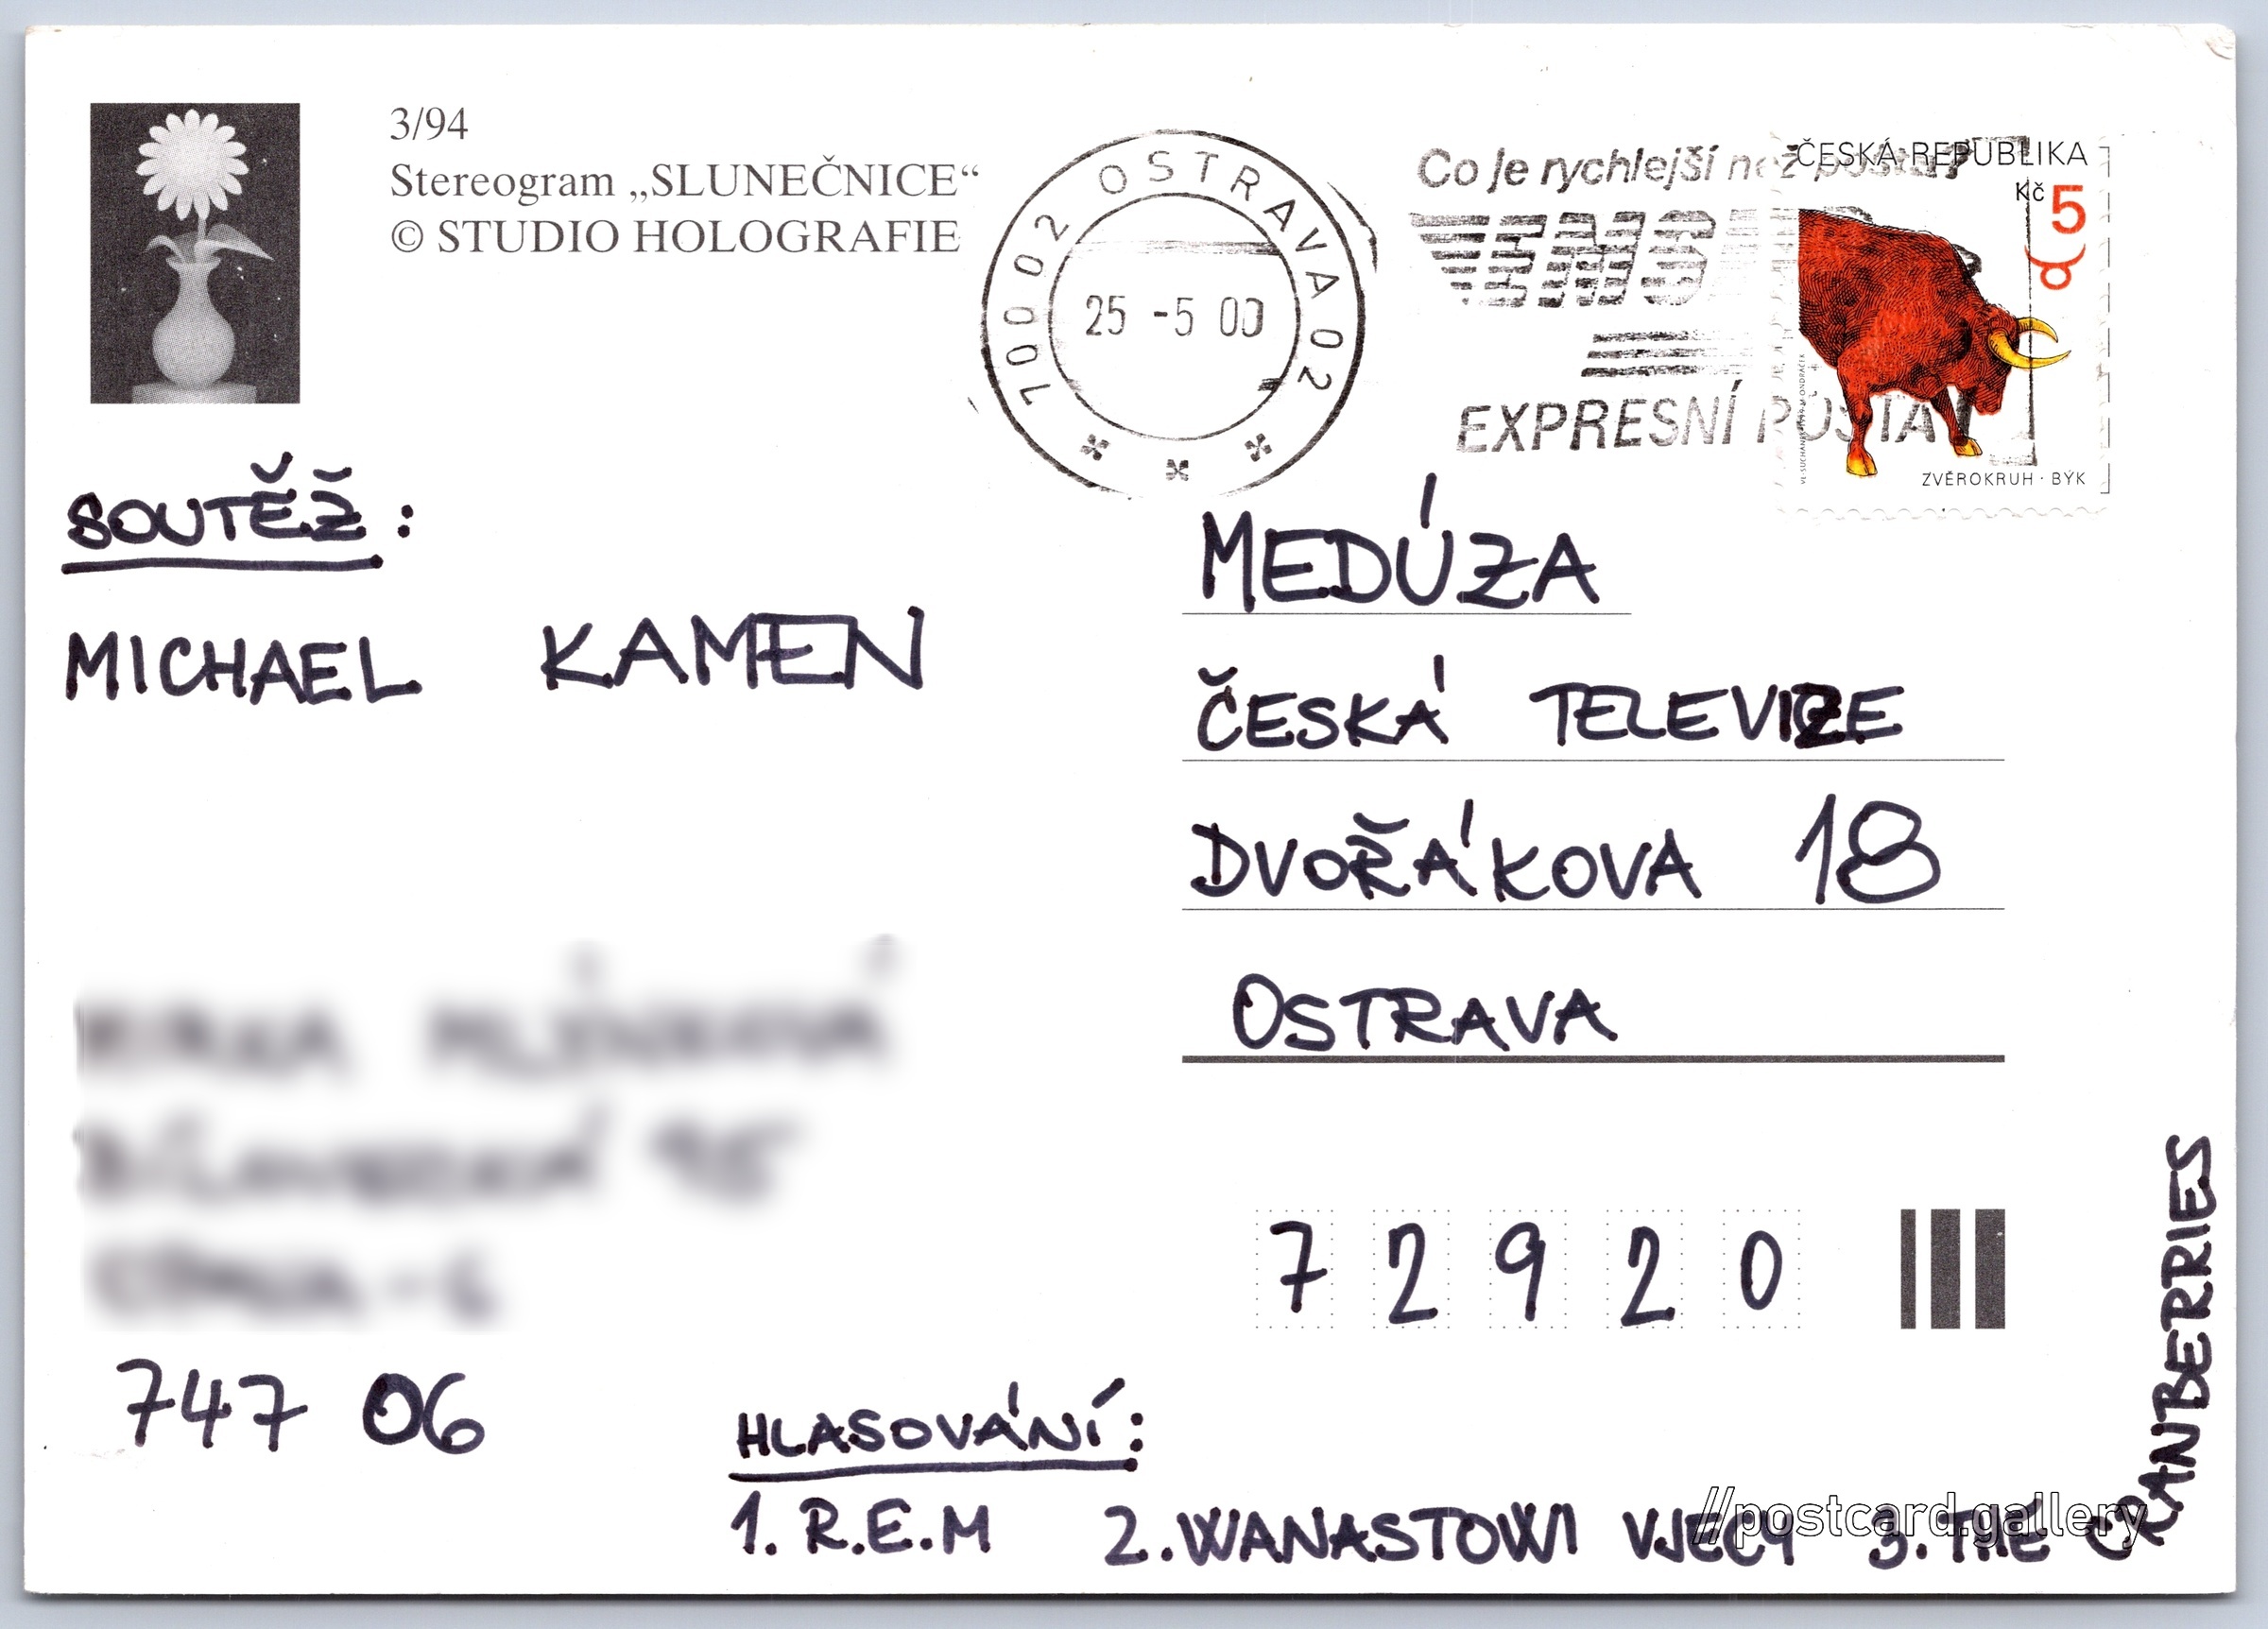 3/94
Stereogram „SLUNEČNICE“
© STUDIO HOLOGRAFIE
70002 OSTRAVA 02
25 -5 00
Co je rychlejší než
EMS
EXPRESNÍ POŠTA
ČESKÁ REPUBLIKA
Kč 5
ZVĚROKRUH · BÝK
SOUTĚŽ:
MICHAEL KAMEN
MEDÚZA
ČESKÁ TELEVIZE
DVOŘÁKOVA 18
OSTRAVA
72920
747 06
HLASOVÁNÍ:
1. R.E.M 2. WANASTOWI VJECY 3. THE CRANBERRIES
//postcard.gallery